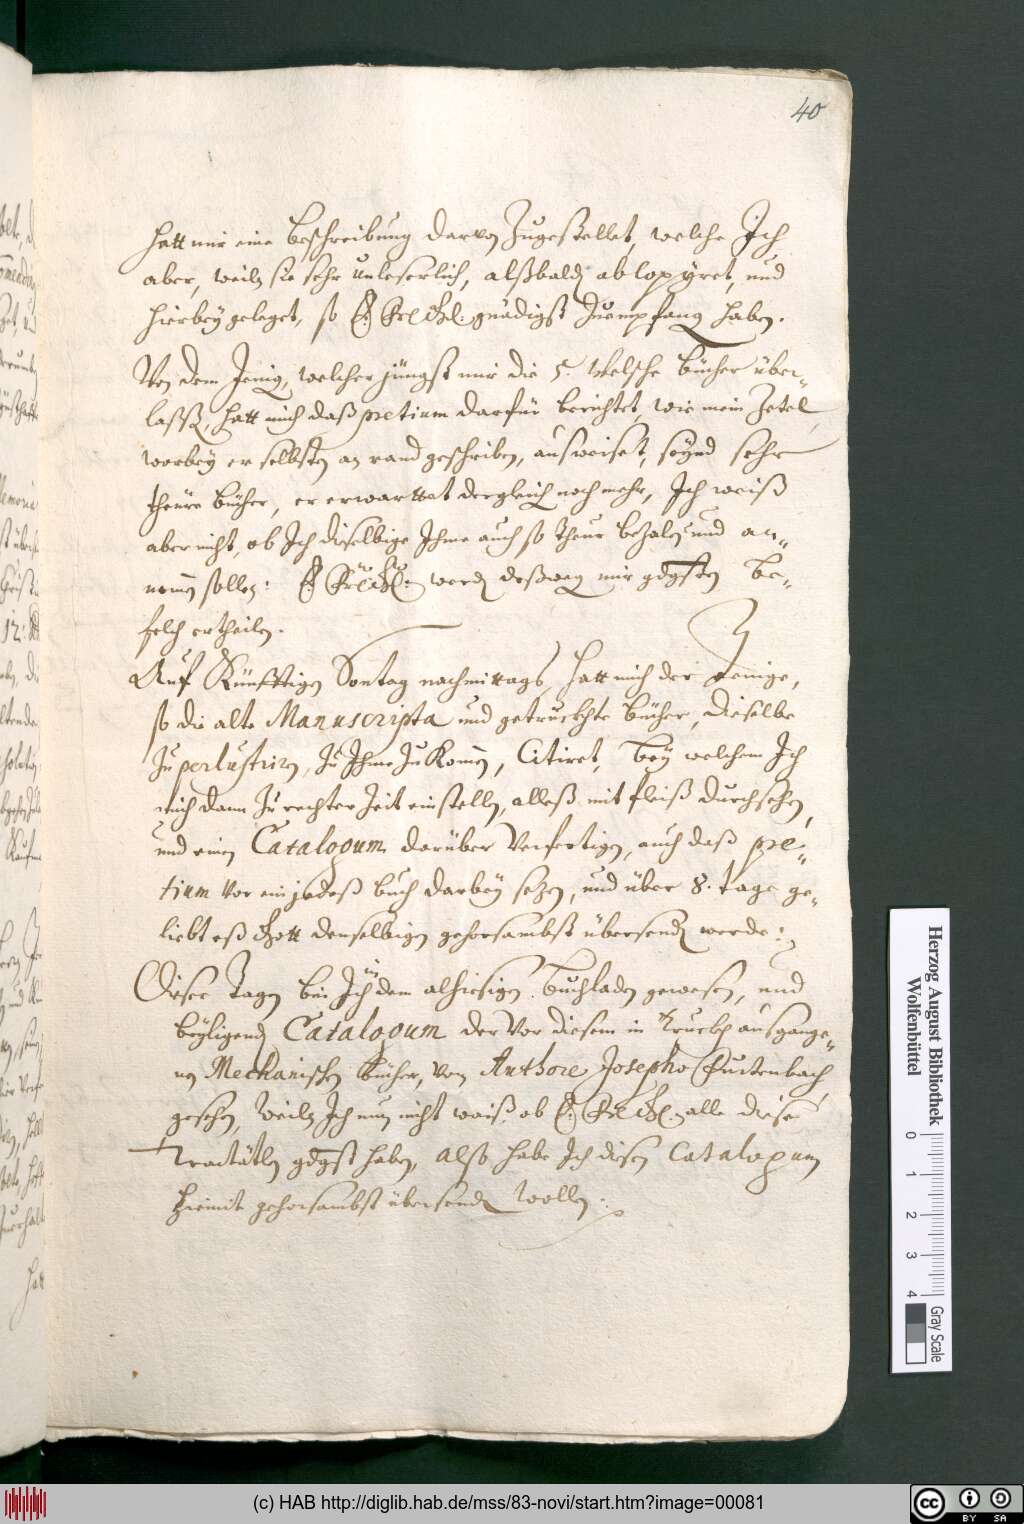 40
hatt mir eine Beschreibung darvon Zugestellet, welche Ich
aber, weiln sie sehr unleserlich, alßbald abcopyret, und
hierbey geleget, so E. Frl. gnädigst Zuempfang haben.
Von dem Jenig, welcher jüngst mir die 5. Welsche Bücher über-
lasß, hatt mich daß pretium darfür berichtet, wie mein Zetel
worbey er selbsten an rand geschriben, außweiset, seynd sehr
theure Bücher, er erwarttet dergleich noch mehr, Ich weiß
aber nicht, ob Ich dieselbige Ihme auch so Theur bezaln und an-
nemen sollen: E. werd deßweg mir gdgsten Be-
felch ertheilen.
Auf Künfftigen Sontag nachmittags hatt mich der Jenige,
so die alte Manuscripta und getruckhte Bücher, dieselbe
Zu perlustrirn, Zu Ihme Zu Komen, Citiret, bey welchem Ich
mich dann Zu rechter Zeit einstelln, alleß mit fleiß durchsehen,
und einen Catalogum darüber Verfertigen, auch daß pre-
tium vor ein jedeß Buch darbey sezen, und über 8. tage ge-
liebt eß Gott denselbigen gehorsambst übersend werde:
Dieser Tagen bin Ich in dem alhiesigen Buchladen gewesen, und
beyligend Catalogum der vor diesem in Truckh außgange-
nen Mechanischen Bücher, von Authore Josepho Furtenbach
gesehen, Weiln Ich nun nicht weiß, ob E. alle diese
Tractätln gdgst haben, also habe Ich diesen Catalogum
hiemit gehorsambst übersend wollen.
Herzog August Bibliothek
Wolfenbüttel
0 1 2 3 4
Gray Scale
(c) HAB http://diglib.hab.de/mss/83-novi/start.htm?image=00081
cc BY SA